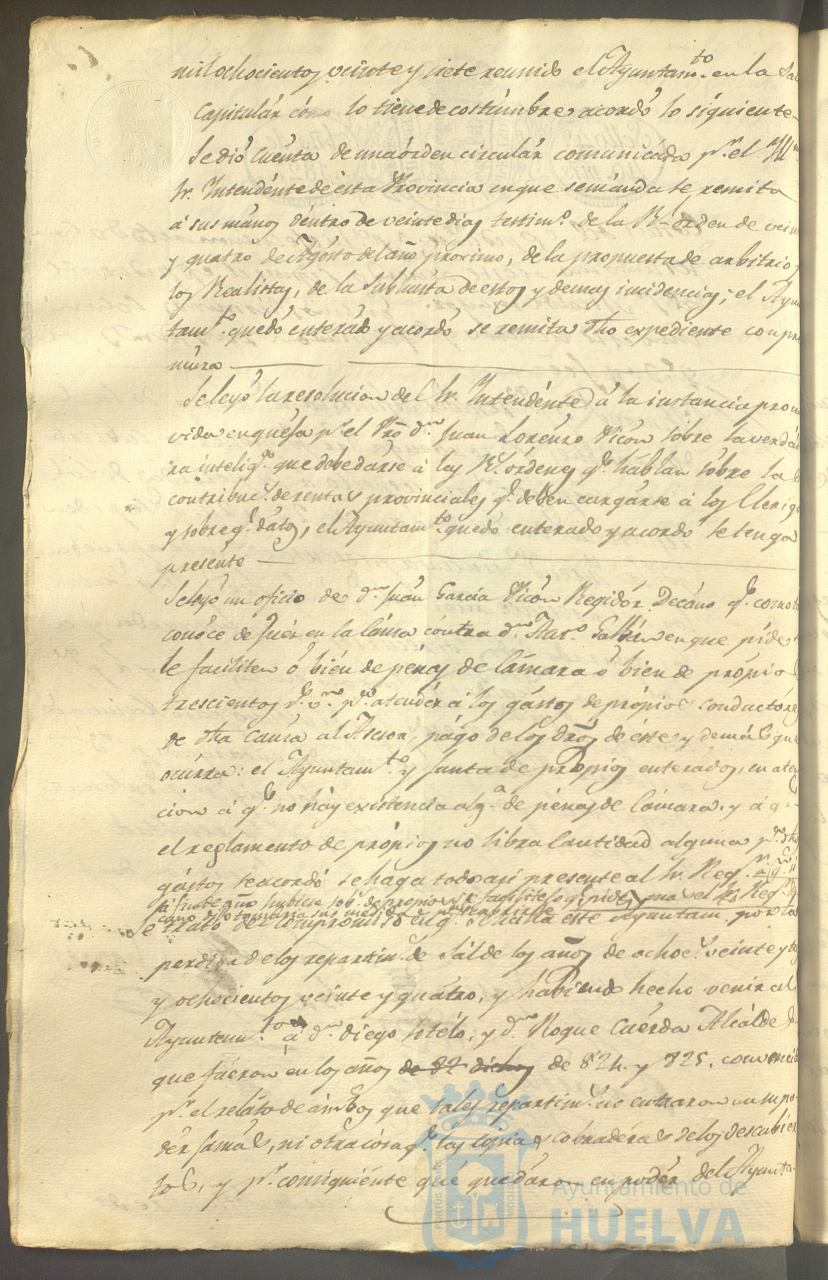 mil ochocientos veinte y siete reunido el Ayuntam.to en la Sa
Capitular cómo lo tiene de costumbre acordó lo siguiente
Se dió Cuenta de una órden circular comunicada p.r el
Sr. Intendénte de ésta Provincia en que se mánda se remita
á sus mános déntro de veinte dias testim.o de la R.l orden de vein
y quatro de Agósto del año próximo, de la propuesta de arbitrios
los Realistas, de la Subhasta de estos y demas incidencias; el Ayun
tam.to quedó enterado y acordó se remita dho expediente con pre
mura
Se leyó la resolucion del Sr. Intendénte á la instancia promo
vida en quéja p.r el Pro d.n Juan Lorenzo Vicon sóbre la verdad
ra intelig.a que debe darse á las R.s órdenes q.e háblan sóbre la
contribuc.n de rentas provinciales q.e deben cargárse á los Clerigo
y sobre q.e dátos, el Ayuntam.to quedó enterado y acordó se tenga
presente
Se leyó un oficio de d.n Juán García Vicon Regidór Decáno q.e como
conóce de Juéz en la cáusa cóntra d.n en que pide
le faciliten ó bién de pénas de Cámara ó bien de própio
trescientos r.s v.n p.a atendér á los gástos de própios conductóre
de dha Causa al Asesor, págo de los dros de éste y demás que
ocúrra: el Ayuntam.to y Junta de própios enterados, en aten
cion á q.e no háy existéncia alg.a de pénas de Cámara, y á q.e
el reglamento de própios no libra Cantidad alguna p.a dho
gástos se acordó se haga todo asi presente al Sr. Reg.r
se trató del compromiso en q.e se halla éste Ayuntam.to por la
perdida de los repartim.s de Sál de los años de ochoc.s veinte y tres
y ochocientos veinte y quátro, y habiendo hecho venir al
Ayuntam.to á d.n Diego Sotélo, y d.n Roque Cuérda Alcálde
que fuéron en los años de 82 dichos de 824. y 825. convenció
p.r el reláto de ámbos que tales repartim.s no entraron en su po
der jamás, ni otra cósa q.e las cobradéras de los descubiér
tos, y p.r consiguiénte que quedáron en podér del Ayunta
Ayuntamiento de
HUELVA